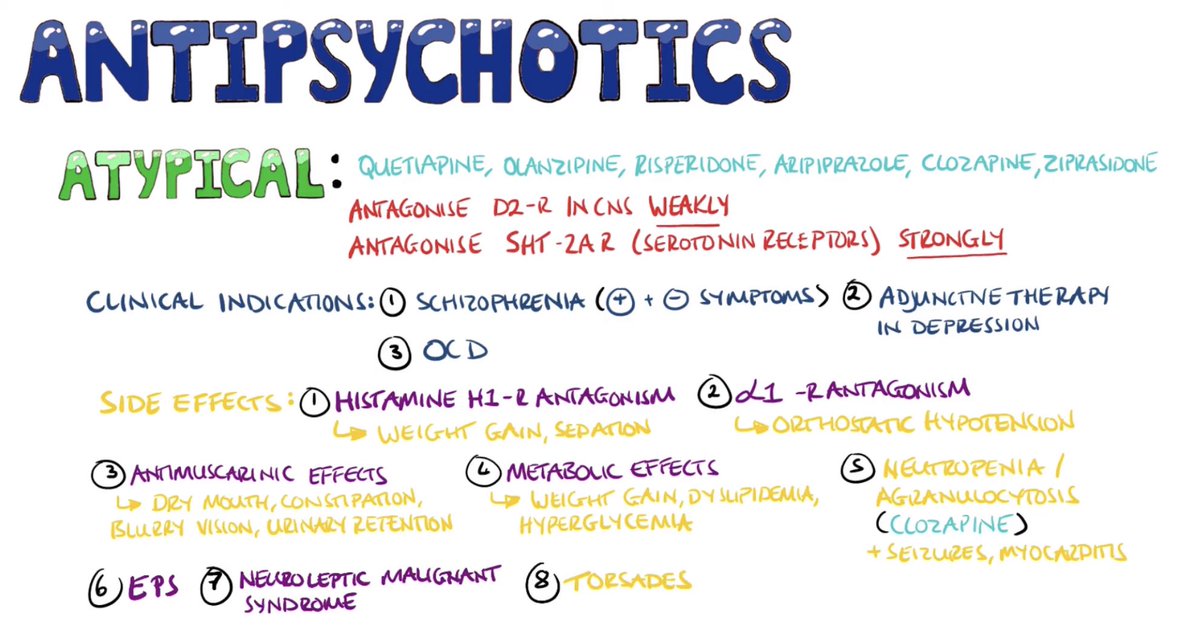 ANTIPSYCHOTICS
ATYPICAL: QUETIAPINE, OLANZIPINE, RISPERIDONE, ARIPIPRAZOLE, CLOZAPINE, ZIPRASIDONE
ANTAGONISE D2-R IN CNS WEAKLY
ANTAGONISE 5HT-2A R (SEROTONIN RECEPTORS) STRONGLY
CLINICAL INDICATIONS: ① SCHIZOPHRENIA (⊕ + ⊖ SYMPTOMS) ② ADJUNCTIVE THERAPY
IN DEPRESSION
③ OCD
SIDE EFFECTS: ① HISTAMINE H1-R ANTAGONISM
↳ WEIGHT GAIN, SEDATION
② α1 -R ANTAGONISM
↳ ORTHOSTATIC HYPOTENSION
③ ANTIMUSCARINIC EFFECTS
↳ DRY MOUTH, CONSTIPATION,
BLURRY VISION, URINARY RETENTION
④ METABOLIC EFFECTS
↳ WEIGHT GAIN, DYSLIPIDEMIA,
HYPERGLYCEMIA
⑤ NEUTROPENIA /
AGRANULOCYTOSIS
(CLOZAPINE)
+ SEIZURES, MYOCARDITIS
⑥ EPS
⑦ NEUROLEPTIC MALIGNANT
SYNDROME
⑧ TORSADES